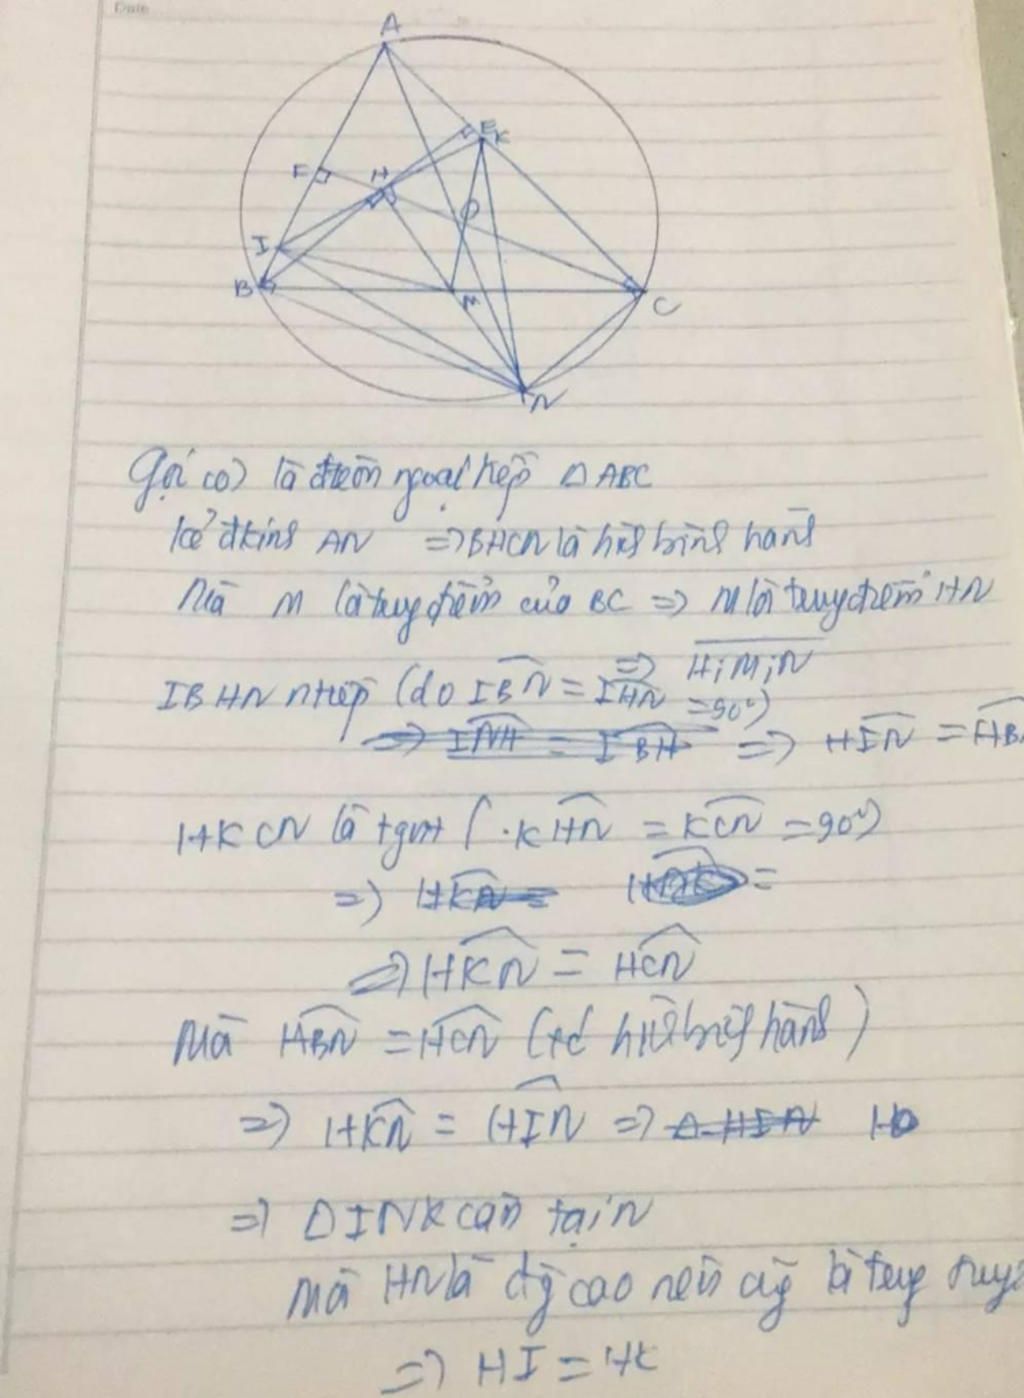 Date
A
E
K
F
H
O
I
B
M
C
N
Gọi (O) là đtròn ngoại tiếp △ ABC
kẻ đkính AN => BHCN là hìh bình hành
Mà M là tuy điểm của BC => M là tuy điểm HN
=> H;M;N
IBHN ntiếp (do IBN = IHN = 90°)
=> INH = IBH => HIN = HB
HKCN là tgnt ( KHN = KCN = 90°)
=> HKN =
=> HKN = HCN
Mà HBN = HCN (t/c hìh bình hành)
=> HKN = HIN => △ HIN
=> △ INK cân tại N
Mà HN là đg cao nên cũg là tuy tuy
=> HI = HK